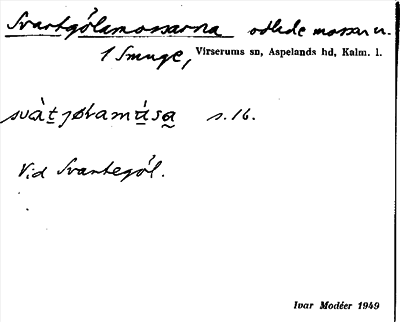 Svartgölamossarna odlade mossar n.
1 Smuge, Virserums sn, Aspelands hd, Kalm. l.
svàt̠jølamɷ́sa̰ s. 16.
Vid Svartegöl.
Ivar Modéer 1949